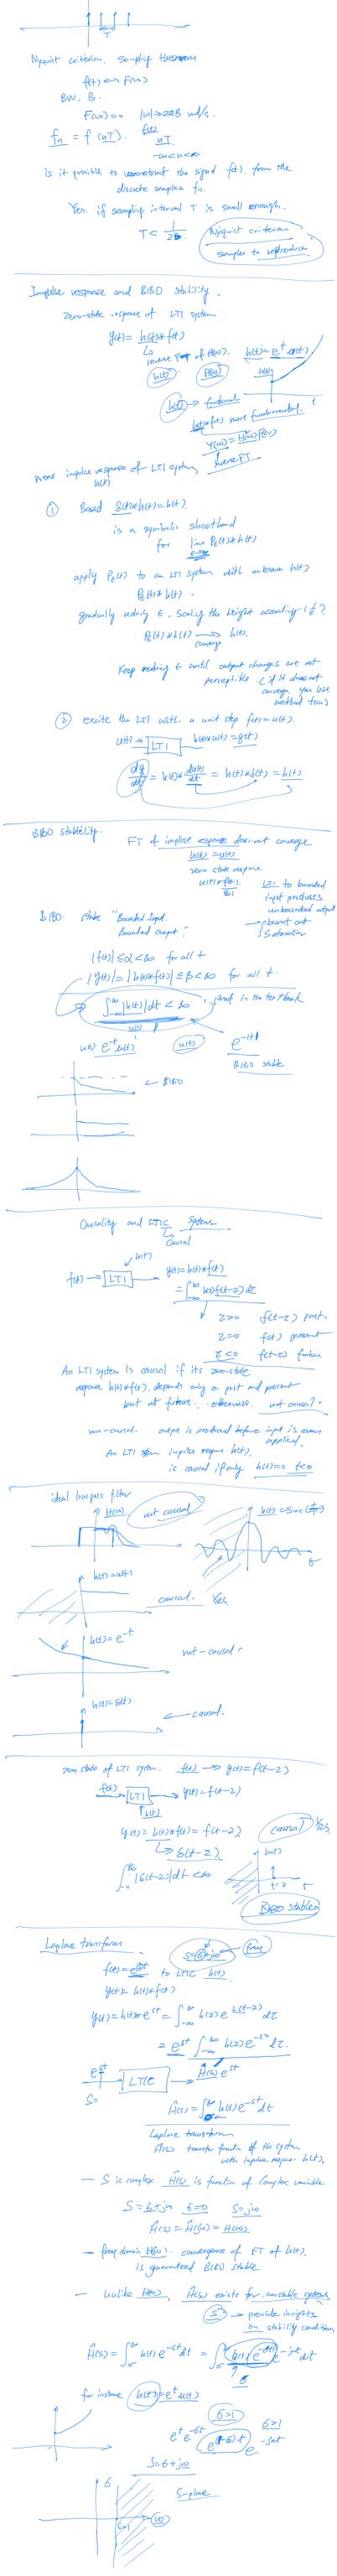 T
Nyquist criterion. Sampling theorem
f(t) ↔ F(ω)
BW, B.
F(ω)=0 |ω|>2πB rad/s.
fn = f(nT). f(t) nT
-∞<n<∞
is it possible to reconstruct the signal f(t). from the
discrete samples fn.
Yes. if sampling interval T is small enough.
T < 1/2B. Nyquist criterion
samples to reproduce
Impulse response and BIBO stability.
zero-state response of LTI system
y(t) = h(t)*f(t)
inverse FT of H(ω). h(t)=e^t u(t)
h(t) F(ω)
h(t)
t
h(t)*f(t) more fundamental.
Y(ω)=H(ω)F(ω)
inverse FT
impulse response of LTI system
h(t)
① Based δ(t)*h(t)=h(t)
is a symbolic shorthand
for lim Pε(t)*h(t)
apply Pε(t) to an LTI system with unknown h(t)
Pε(t)*h(t).
gradually reducing ε. Scaling the height according (1/ε)
Pε(t)*h(t) → h(t).
converge
Keep reducing ε until output changes are not
perceptible. (if it does not
converge, you use
method two)
② excite the LTI with a unit step f(t)=u(t).
u(t) → LTI h(t)*u(t)=g(t)
dg/dt = h(t)* du(t)/dt = h(t)*δ(t) = h(t)
BIBO stability.
FT of impulse response does not converge
h(t)=u(t)
zero state response
u(t)*f(t)
LTI to bounded
input produces
unbounded output
burnt out
Saturation
BIBO stable "Bounded Input.
Bounded Output."
|f(t)|≤α<∞ for all t
|y(t)|=|h(t)*f(t)|≤β<∞ for all t.
∫-∞^∞ |h(t)|dt < ∞ proof in the textbook
e^-t u(t) u(t) e^-|t|
BIBO stable
← BIBO
Causality and LTIC System
Causal
h(t)
f(t) → LTI → y(t)=h(t)*f(t)
=∫-∞^∞ h(τ)f(t-τ)dτ
τ>0 f(t-τ) past.
τ=0 f(t) present
τ<0 f(t-τ) future
An LTI system is causal if its zero-state
response h(t)*f(t). depends only on past and present
but not future. otherwise. not causal.
non-causal. output is produced before input is even
applied.
An LTI system impulse response h(t).
is causal if only h(t)=0 t<0
ideal lowpass filter
H(ω) not causal h(t)=Sinc(
t
h(t)=u(t)
causal. Yes
h(t)=e^-t
not-causal.
h(t)=δ(t)
← causal.
zero state of LTI system. f(t) → y(t)=f(t-2)
f(t) → LTI → y(t)=f(t-2)
h(t)
y(t)=h(t)*f(t)=f(t-2)
causal Yes
δ(t-2)
h(t)
∫-∞^∞ |δ(t-2)|dt <∞
t=2
BIBO stable
Laplace transform s=σ+jω freq
f(t)=e^st to LTIC h(t)
y(t)= h(t)*f(t)
y(t)=h(t)*e^st=∫-∞^∞ h(τ)e^s(t-τ) dτ
= e^st ∫-∞^∞ h(τ)e^-sτ dτ.
e^st → LTIC → Ĥ(s)e^st
s=
Ĥ(s)=∫ h(t)e^-st dt
Laplace transform
Ĥ(s) transfer function of the system
with impulse response h(t).
- S is complex Ĥ(s) is function of Complex variable
S=σ+jω σ=0 S=jω
Ĥ(s)=Ĥ(jω)=H(ω)
- freq domain H(ω). convergence of FT of h(t).
is guaranteed BIBO stable
- Unlike H(ω), Ĥ(s) exists for unstable systems
s → provide insights
on stability condition
Ĥ(s)=∫ h(t)e^-st dt = ∫ h(t)e^-σt e^-jωt dt
σ
for instance h(t)=e^t u(t)
σ>1 σ>1
e^t e^-σt
e^(1-σ)t e^-jωt
S=σ+jω
σ
S-plane
σ=1